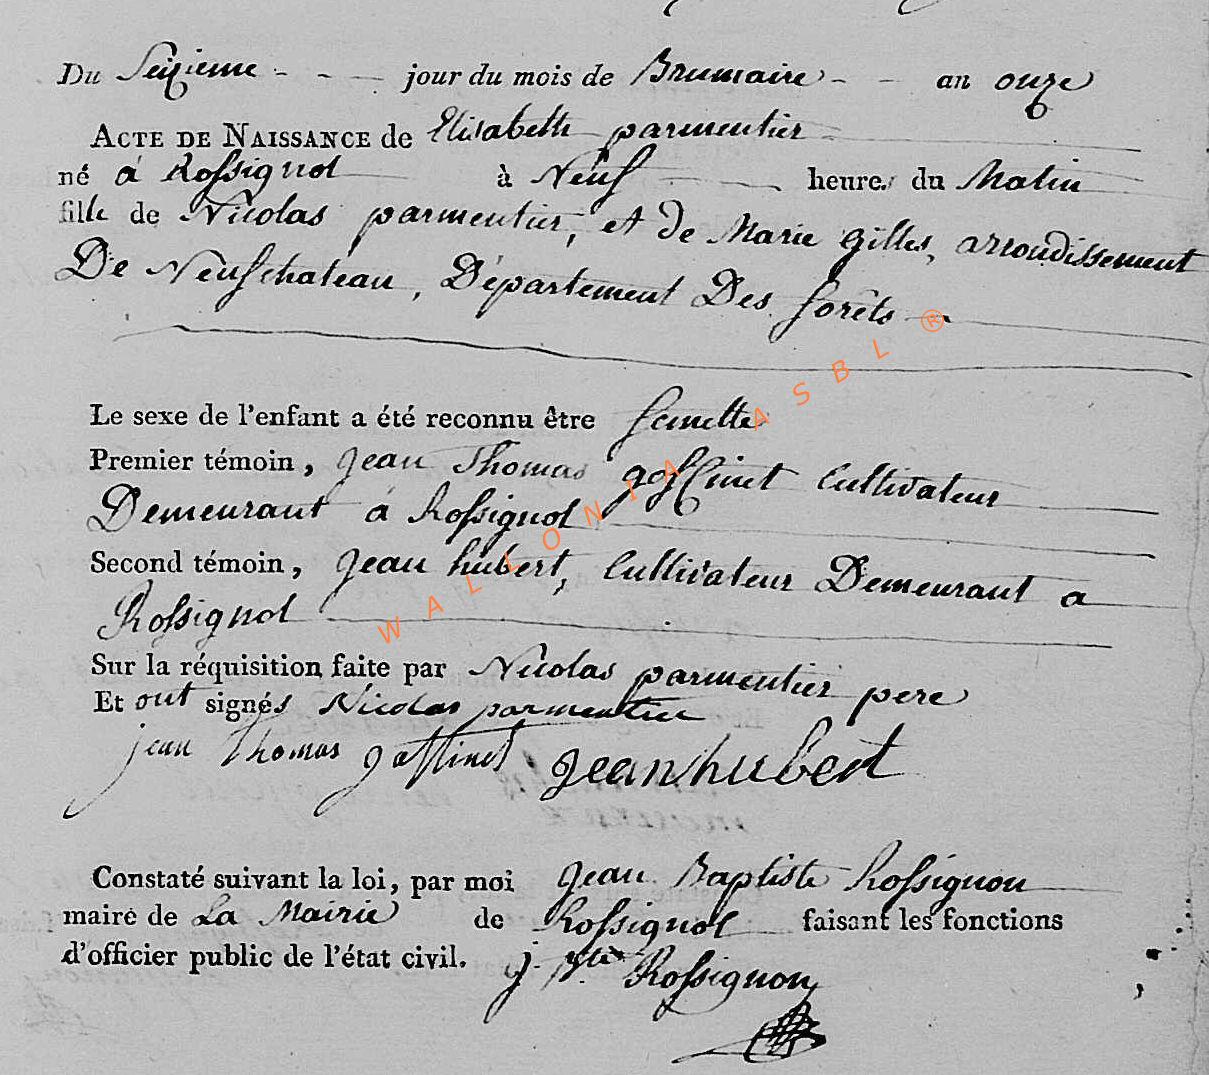 Du Seizieme - - - jour du mois de Brumaire - - an onze
ACTE DE NAISSANCE de Elisabeth parmentier
né à Rossignol à Neuf heures du Matin
fille de Nicolas parmentier, et de Marie gilles, arrondissement
De Neufchateau, Département Des forêts
Le sexe de l'enfant a été reconnu être femelle
Premier témoin, jean Thomas goffinet Cultivateur
Demeurant à Rossignol
Second témoin, jean hubert, Cultivateur Demeurant a
Rossignol
Sur la réquisition faite par Nicolas parmentier pere
Et ont signés Nicolas parmentier
jean Thomas goffinet jean hubert
Constaté suivant la loi, par moi jean Baptiste Rossignon
maire de La Mairie de Rossignol faisant les fonctions
d'officier public de l'état civil. j. Bte Rossignon
WALLONIA ASBL ®